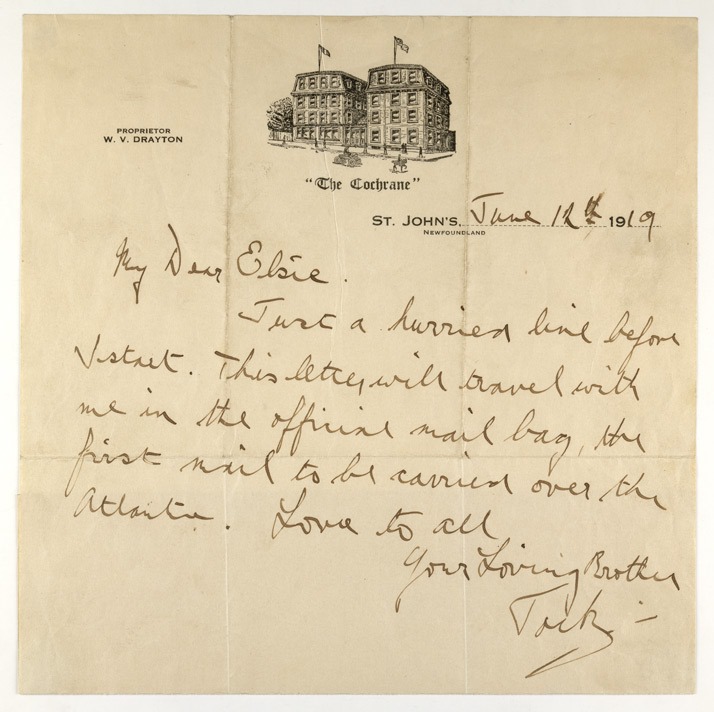 PROPRIETOR
W. V. DRAYTON
"The Cochrane"
ST. JOHN'S, June 12th 1919
NEWFOUNDLAND
My Dear Elsie.
Just a hurried line before
I start. This letter will travel with
me in the official mail bag, the
first mail to be carried over the
Atlantic. Love to all
Your Loving Brother
Jack